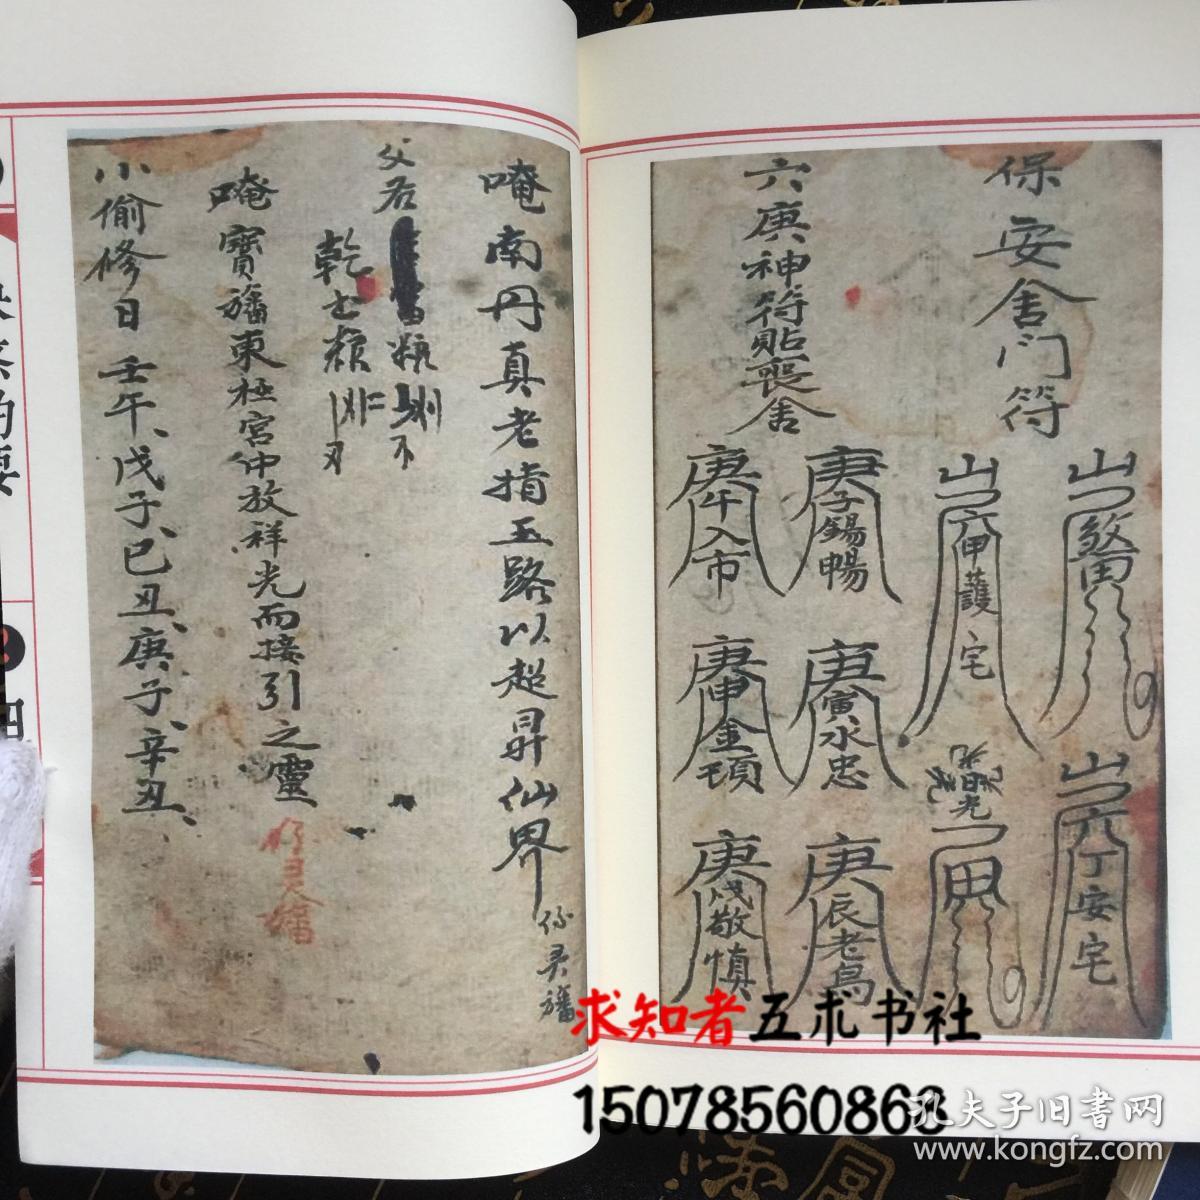 保安舍門符
六庚神符貼喪舍
六甲護宅
六丁安宅
庚子錫暢
庚寅永忠
庚辰老鳥
庚午入市
庚申金頂
庚戌敬慎
唵南丹真老指五路以超昇仙界
父若
唵寶旛東極宮中放祥光而接引之靈
小偷修日壬午、戊子、己丑、庚子、辛丑、
求知者五术书社
15078560863
孔夫子旧書网
www.kongfz.com